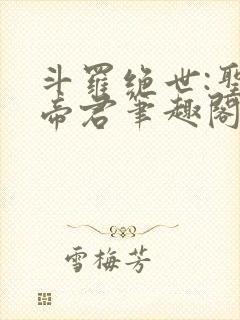 斗羅絕世:聖
帝君筆趣閣
雪梅芳